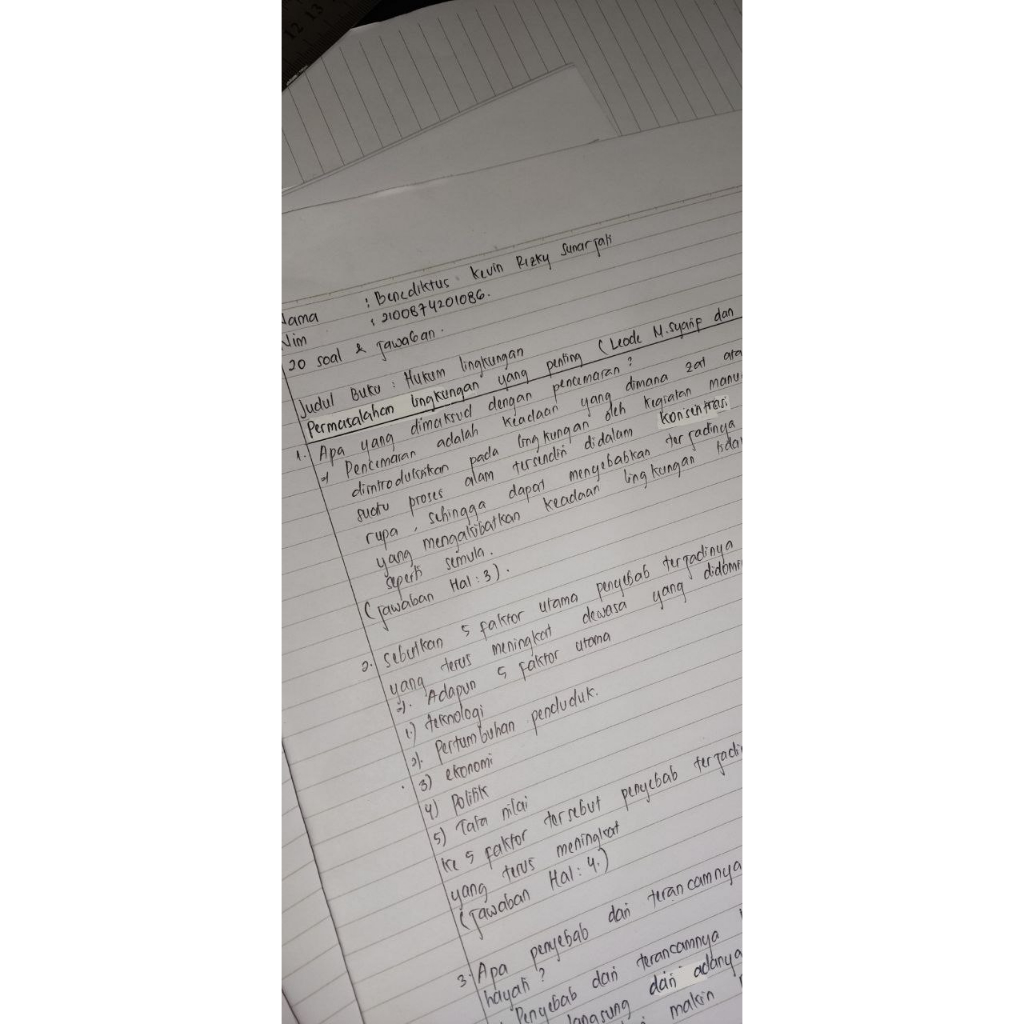 12 13
Nama : Benediktus Kevin Rizky Sunarjati
Nim : 2100874201086.
20 soal & Jawaban.
Judul Buku : Hukum lingkungan
Permasalahan lingkungan yang penting (Leode M. Syarif dan
1. Apa yang dimaksud dengan pencemaran?
Pencemaran adalah keadaan yang dimana zat ata
diintroduksikan pada lingkungan oleh kegiatan manu
suatu proses alam tersendiri didalam konsentrasi
rupa, sehingga dapat menyebabkan terjadinya
yang mengakibatkan keadaan lingkungan tida
seperti semula.
(Jawaban Hal : 3).
2. Sebutkan 5 faktor utama penyebab terjadinya
yang terus meningkat dewasa yang didomi
Adapun 5 faktor utama
1.) teknologi
2). Pertumbuhan penduduk.
3) ekonomi
4) Politik
5) Tata nilai
ke 5 faktor tersebut penyebab terjadi
yang terus meningkat
(Jawaban Hal : 4.)
3. Apa penyebab dari terancamnya
hayati?
Penyebab dari terancamnya
langsung dari adanya
makin